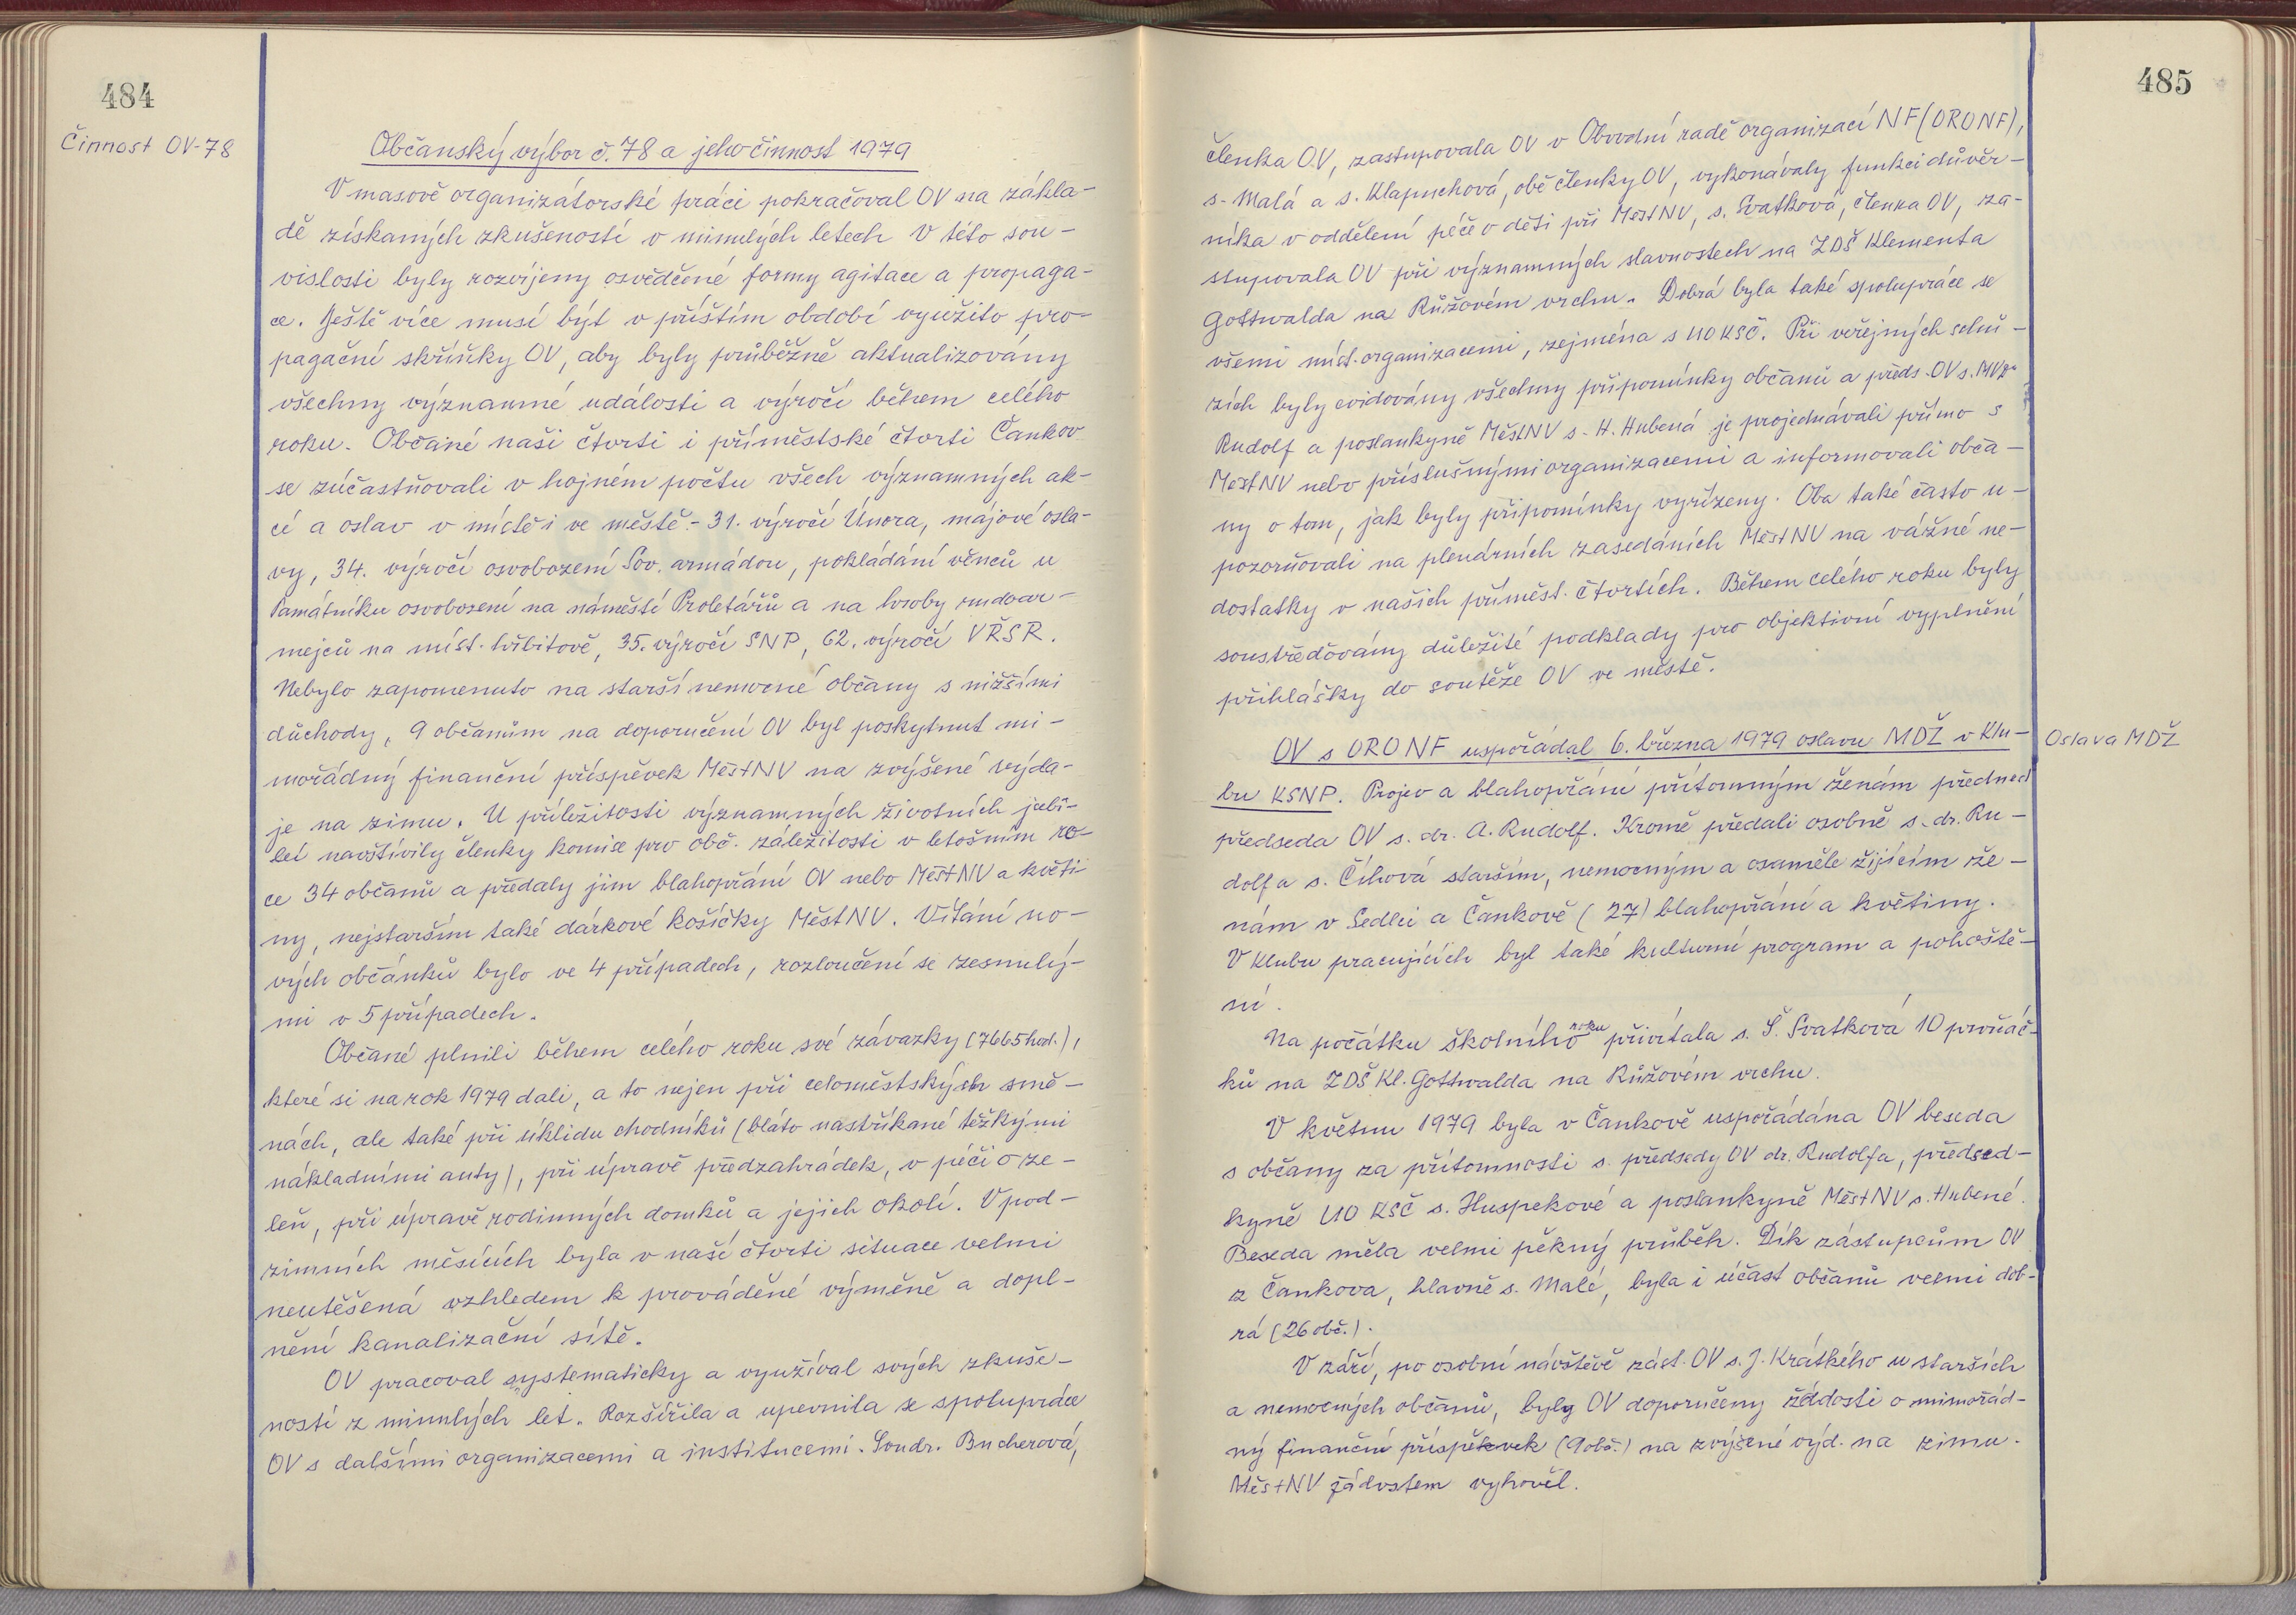 484
Činnost OV-78
Občanský výbor č. 78 a jeho činnost 1979
V masově organizátorské práci pokračoval OV na zákla-
dě získaných zkušeností v minulých letech V této sou-
vislosti byly rozvíjeny osvědčené formy agitace a propaga-
ce. Ještě více musí být v příštím období využito pro-
pagační skříňky OV, aby byly průběžně aktualizovány
všechny významné události a výročí během celého
roku. Občané naší čtvrti i příměstské čtvrti Čankov
se zúčastňovali v hojném počtu všech významných ak-
cí a oslav v místě i ve městě.- 31. výročí Února, májové osla-
vy, 34. výročí osvobození Sov. armádou, pokládání věnců u
Památníku osvobození na náměstí Proletářů a na hroby rudoar-
mejců na míst. hřbitově, 35. výročí SNP, 62. výročí VŘSR.
Nebylo zapomenuto na starší nemocné občany s nižšími
důchody, 9 občanům na doporučení OV byl poskytnut mi-
mořádný finanční příspěvek MěstNV na zvýšené výda-
je na zimu. U příležitosti významných životních jubi-
leí navštívily členky komise pro obč. záležitosti v letošním ro-
ce 34 občanů a předaly jim blahopřání OV nebo MěstNV a květi-
ny, nejstarším také dárkové košíčky MěstNV. Vítání no-
vých občánků bylo ve 4 případech, rozloučení se zesnulý-
mi v 5 případech.
Občané plnili během celého roku své závazky (7665 hod.),
které si na rok 1979 dali, a to nejen při celoměstských smě-
nách, ale také při úklidu chodníků (bláto nastříkané těžkými
nákladními auty), při úpravě předzahrádek, v péči o ze-
leň, při úpravě rodinných domků a jejich okolí. V pod-
zimních měsících byla v naší čtvrti situace velmi
neutěšená vzhledem k prováděné výměně a dopl-
nění kanalizační sítě.
OV pracoval systematicky a využíval svých zkuše-
ností z minulých let. Rozšířila a upevnila se spolupráce
OV s dalšími organizacemi a institucemi. Soudr. Bucherová,
485
členka OV, zastupovala OV v Obvodní radě organizací NF (ORONF),
s. Malá a s. Klapuchová, obě členky OV, vykonávaly funkci důvěr-
níka v oddělení péče o děti při MěstNV, s. Svatková, členka OV, za-
stupovala OV při významných slavnostech na ZDŠ Klementa
Gottwalda na Růžovém vrchu. Dobrá byla také spolupráce se
všemi míst. organizacemi, zejména s UO KSČ. Při veřejných schů-
zích byly evidovány všechny připomínky občanů a předs. OV s.
Rudolf a poslankyně MěstNV s. H. Hubená je projednávali přímo s
MěstNV nebo příslušnými organizacemi a informovali obča-
ny o tom, jak byly připomínky vyřízeny. Oba také často u-
pozorňovali na plenárních zasedáních MěstNV na vážné ne-
dostatky v našich příměst. čtvrtích. Během celého roku byly
soustřeďovány důležité podklady pro objektivní vyplnění
přihlášky do soutěže OV ve městě.
OV s ORONF uspořádal 6. března 1979 oslavu MDŽ v Klu-
Oslava MDŽ
bu KSNP. Projev a blahopřání přítomným ženám přednesl
předseda OV s. dr. A. Rudolf. Kromě předali osobně s. dr. Ru-
dolf a s. Číhová starším, nemocným a osaměle žijícím že-
nám v Sedleci a Čankově (27) blahopřání a květiny.
V Klubu pracujících byl také kulturní program a pohoště-
ní.
Na počátku školního roku přivítala s. Š. Svatková 10 prvňáč-
ků na ZDŠ Kl. Gottwalda na Růžovém vrchu.
V květnu 1979 byla v Čankově uspořádána OV beseda
s občany za přítomnosti s. předsedy OV dr. Rudolfa, předsed-
kyně UO KSČ s. Huspekové a poslankyně MěstNV s. Hubené.
Beseda měla velmi pěkný průběh. Dík zástupcům OV
z Čankova, hlavně s. Malé, byla i účast občanů velmi dob-
rá (26 obč.).
V září, po osobní návštěvě zást. OV s. J. Krátkého u starších
a nemocných občanů, byly OV doporučeny žádosti o mimořád-
ný finanční příspěvek (9 obč.) na zvýšené výd. na zimu.
MěstNV žádostem vyhověl.